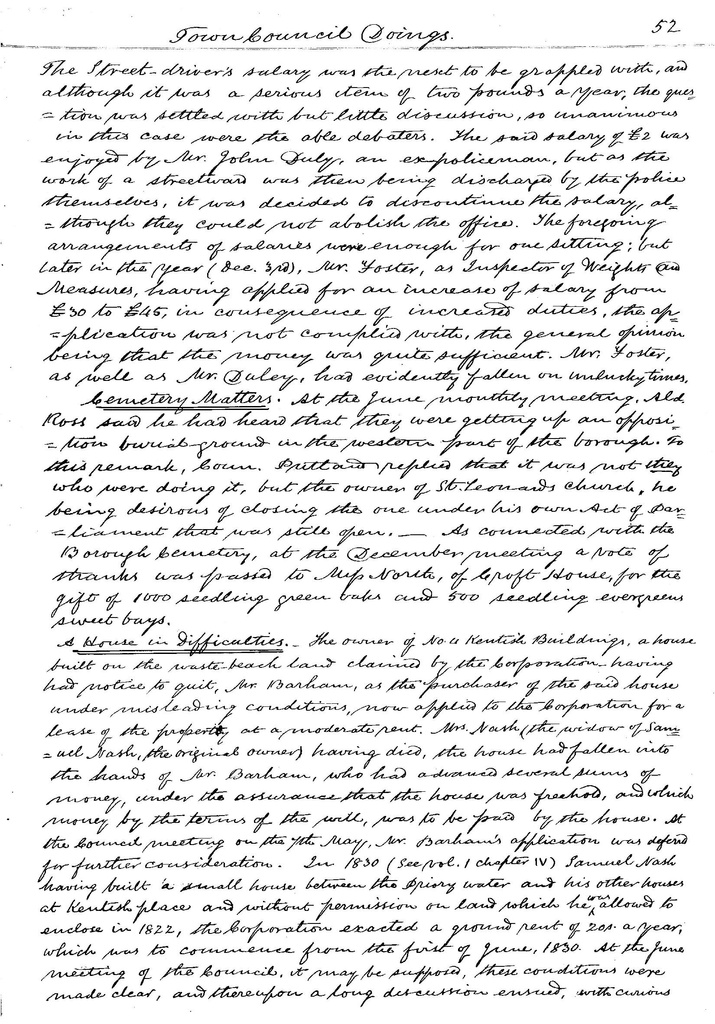 Town Council Doings. 52
The Street-driver's salary was the next to be grappled with, and
although it was a serious item of two pounds a year, the ques-
=tion was settled with but little discussion, so unanimous
in this case were the able debaters. The said salary of £2 was
enjoyed by Mr. John Duly, an ex policeman, but as the
work of a streetward was then being discharged by the police
themselves, it was decided to discontinue the salary, al-
=though they could not abolish the office. The foregoing
arrangements of salaries were enough for one sitting; but
later in the year (Dec. 3rd), Mr. Foster, as Inspector of Weights and
Measures, having applied for an increase of salary from
£30 to £45, in consequence of increased duties, the ap-
=plication was not complied with, the general opinion
being that the money was quite sufficient. Mr. Foster,
as well as Mr. Duley, had evidently fallen on unlucky times.
Cemetery Matters. At the June monthly meeting, Ald
Ross said he had heard that they were getting up an opposi-
=tion burial ground in the western part of the borough. To
this remark, Coun. Putland replied that it was not they
who were doing it, but the owner of St. Leonards church, he
being desirous of closing the one under his own Act of Par-
=liament that was still open. — As connected with the
Borough Cemetery, at the December meeting a vote of
thanks was passed to Miss North, of Croft House, for the
gift of 1000 seedling green oaks and 500 seedling evergreens
sweet bays.
A House in Difficulties. - The owner of No 4 Kentish Buildings, a house
built on the waste-beach land claimed by the Corporation - having
had notice to quit, Mr. Barham, as the purchaser of the said house
under misleading conditions, now applied to the Corporation for a
lease of the property at a moderate rent. Mrs. Nash (the widow of Sam-
=uel Nash, the original owner) having died, the house had fallen into
the hands of Mr. Barham, who had advanced several sums of
money, under the assurance that the house was freehold, and which
money by the terms of the will, was to be paid by the house. At
the Council meeting on the 7th. May, Mr. Barham's application was deferred
for further consideration. In 1830 (See vol. 1 chapter IV) Samuel Nash
having built a small house between the Priory water and his other houses
at Kentish place and without permission on land which he was allowed to
enclose in 1822, the Corporation exacted a ground rent of 20s. a year,
which was to commence from the first of June, 1830. At the June
meeting of the Council, it may be supposed, these conditions were
made clear, and thereupon a long discussion ensued, with curious